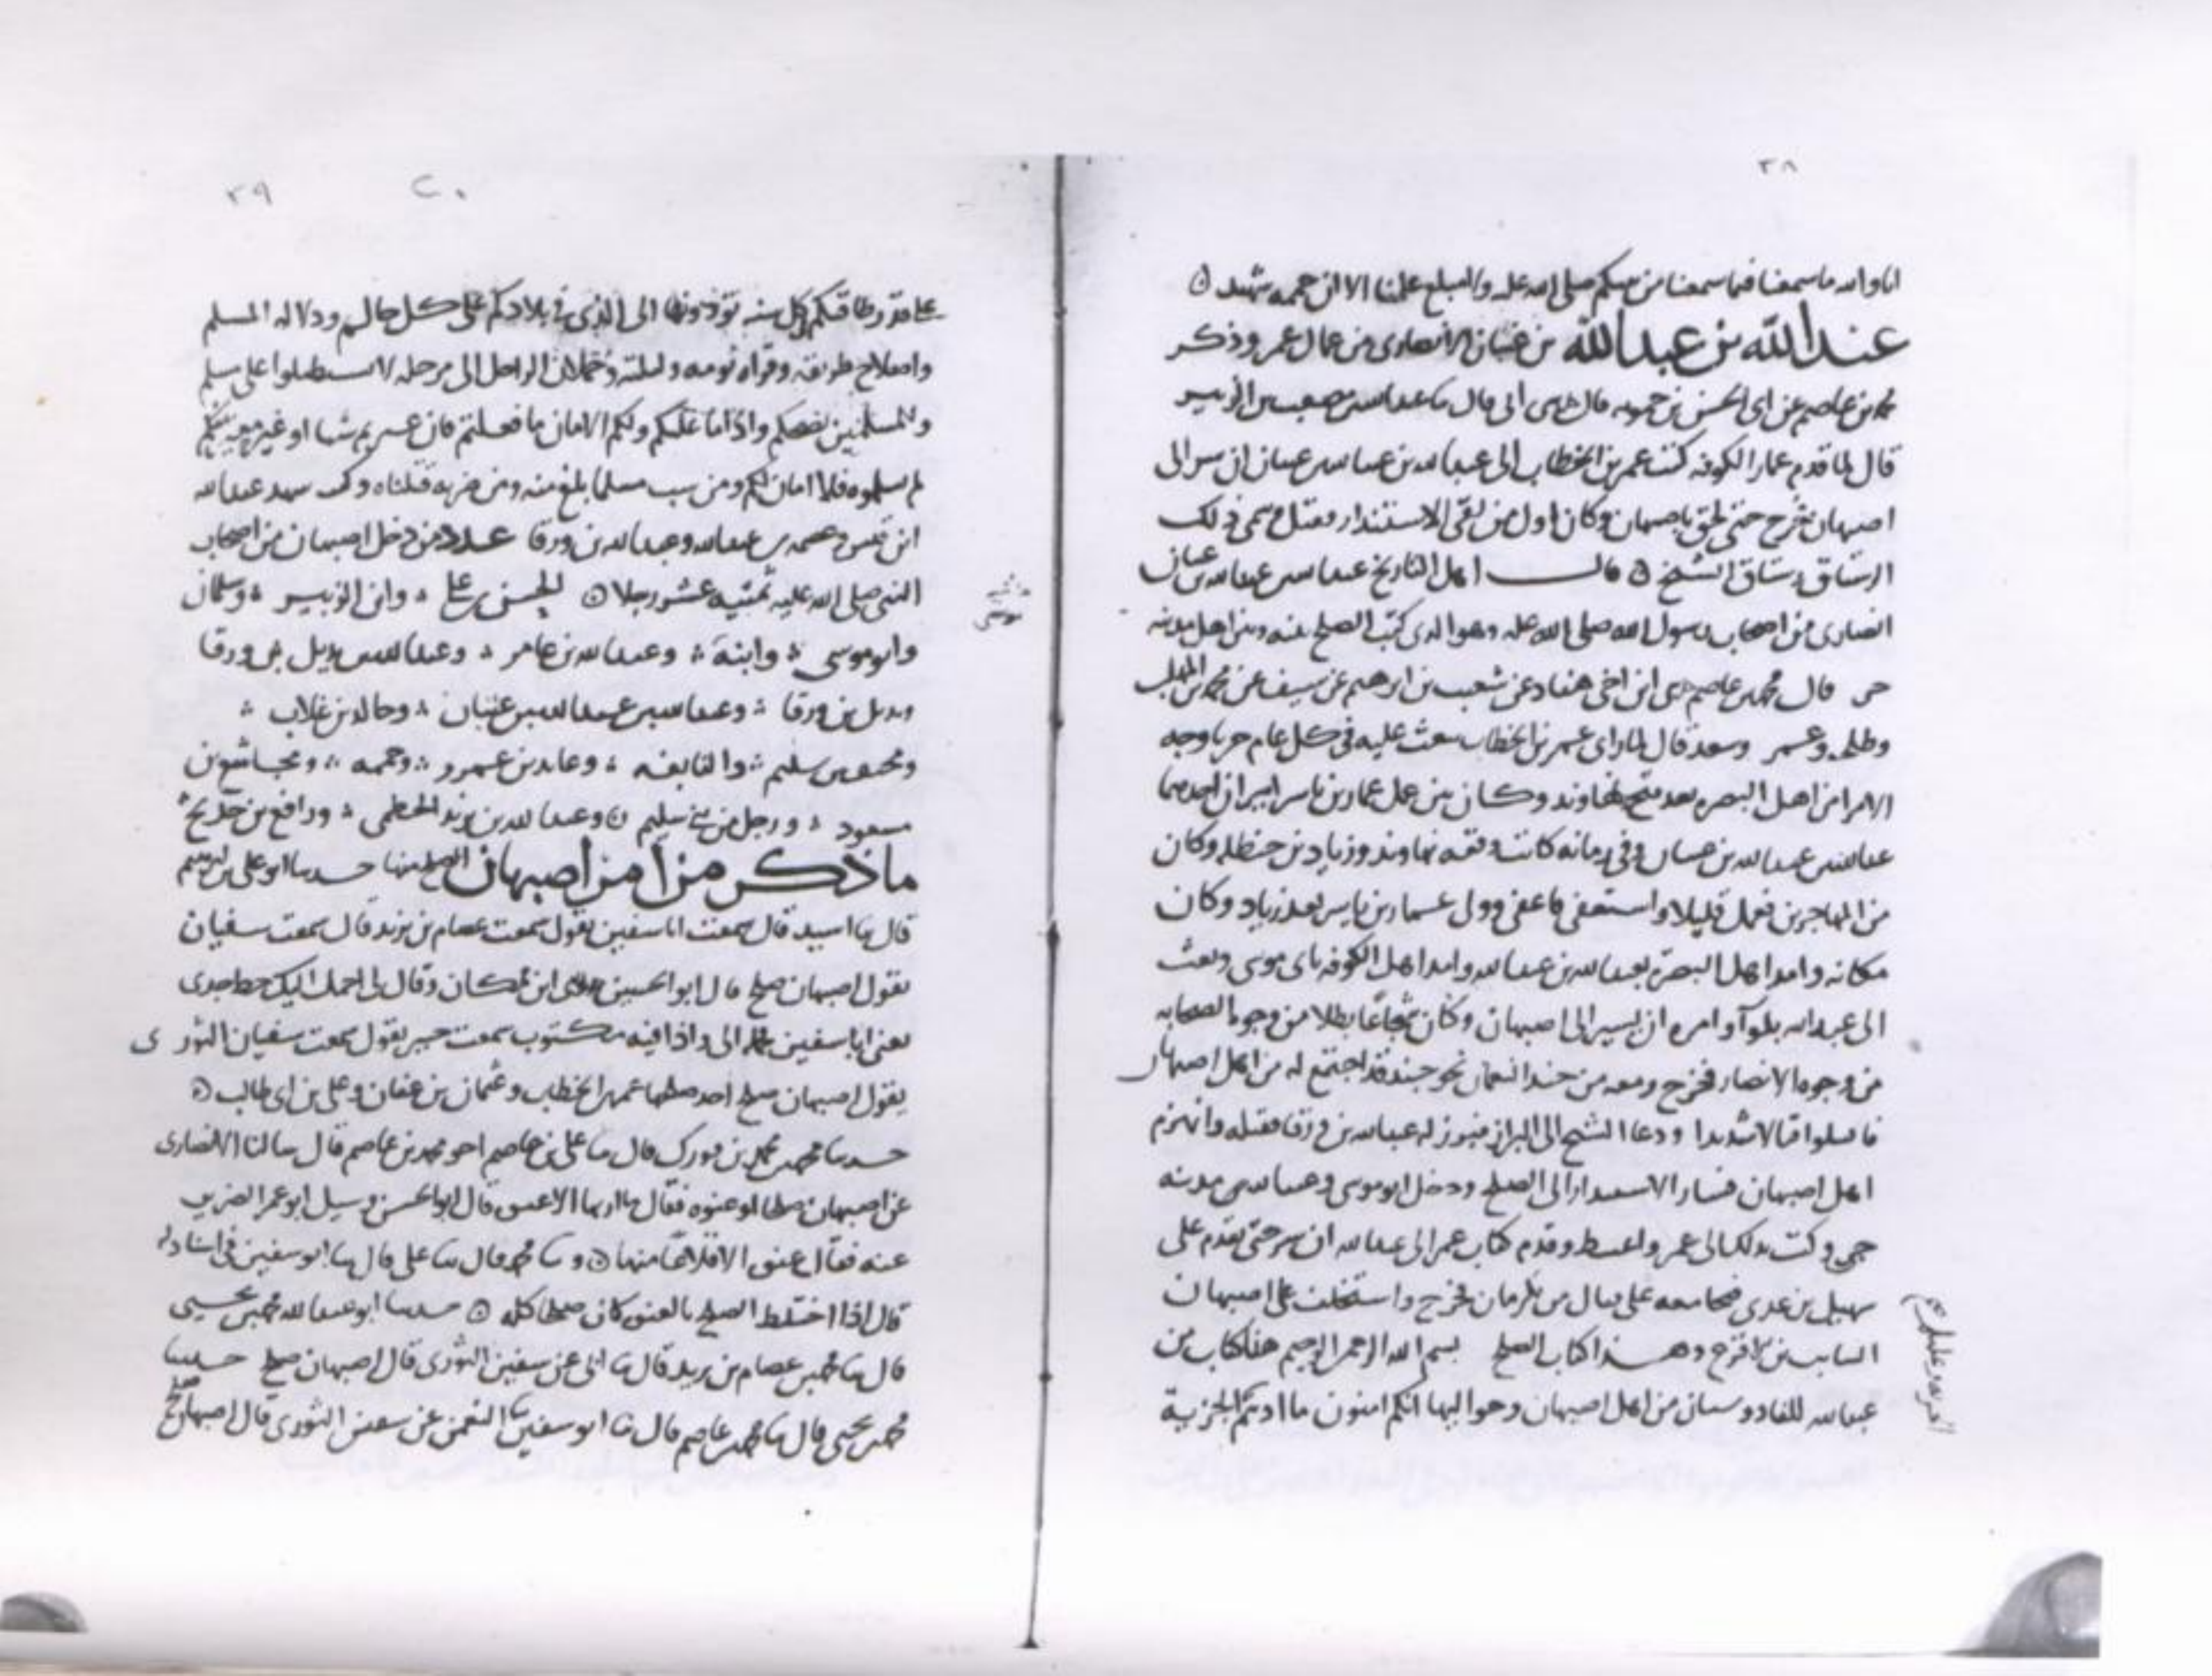 ٣٨
انا والله ما سمعنا فيما سمعنا من نبيكم صلى الله عليه وما بلغ علمنا الا ان حممه شهيد
عبد الله بن عبد الله بن عتبان الانصارى من عمال عمر وذكر
محمد بن عاصم عن ابى الحسن بن حمويه قال حدثنى ابى قال ثنا عبد الله بن مصعب بن الزبير
قال لما قدم عمار الكوفه كتب عمر بن الخطاب الى عبد الله بن عبد الله بن عتبان ان سر الى
اصبهان فخرج حتى لحق باصبهان وكان اول من لقى الاستندار فقتل وسمى ذلك
الرستاق رستاق الشيخ قال اهل التاريخ عبد الله بن عبد الله بن عتبان
انصارى من اصحاب رسول الله صلى الله عليه وهو الذى كتب الصلح بينه وبين اهل مدينه
جى قال محمد بن عاصم حدثنى ابن اخى هناد عن شعيب بن ابرهيم عن سيف عن محمد بن المهلب
وطلحه وعمر وسعد قال لما راى عمر بن الخطاب يبعث عليه فى كل عام حربا وجه
الامرا من اهل البصره بعد فتح نهاوند وكان بين عمل عمار بن ياسر اميران احدهما
عبد الله بن عبد الله بن عتبان وفى زمانه كانت وقعه نهاوند وزياد بن حنظله وكان
من المهاجرين فعمل قليلا واستعفى فاعفى وولى عمار بن ياسر بعد زياد وكان
مكانه وامد اهل البصره بعبد الله بن عبد الله وامد اهل الكوفه بابى موسى وبعث
الى عبد الله بلوا وامره ان يسير الى اصبهان وكان شجاعا بطلا من وجوه الصحابه
من وجوه الانصار فخرج ومعه من جند النعمان نحو جند قد اجتمع له من اهل اصبهان
فاقتتلوا قتالا شديدا ودعا الشيخ الى البراز فبرز له عبد الله بن ورقا فقتله وانهزم
اهل اصبهان فسار الاستندار الى الصلح ودخل ابو موسى وعبد الله مدينه
جى وكتب بذلك الى عمر واغتبط وقدم كتاب عمر الى عبد الله ان سر حتى تقدم على
سهيل بن عدى فتجامعه على قتال من بكرمان فخرج واستخلف على اصبهان
السايب بن الاقرع وهذا كتاب الصلح بسم الله الرحمن الرحيم هذا كتاب من
عبد الله للفادوسبان من اهل اصبهان وحواليها انكم امنون ما اديتم الجزية
٣٩
٢٠
على قدر طاقتكم كل سنه تؤدونها الى الذى يلى بلادكم على كل حالم ودلاله المسلم
واصلاح طريقه وقراه يومه وليلته وحملان الراجل الى مرحله لا تسلطوا على مسلم
وللمسلمين نصحكم واداما عليكم ولكم الامان ما فعلتم فان غيرتم شيا او غيره مغير منكم
لم تسلموه فلا امان لكم ومن سب مسلما بلغ منه ومن ضربه قتلناه وكتب شهد عبد الله
ابن قيس وعصمه بن عبد الله وعبد الله بن ورقا عدد من دخل اصبهان من اصحاب
النبى صلى الله عليه ثمنيه عشر رجلا الحسن بن على وابن الزبير وسلمان
وابو موسى وابنه وعبد الله بن عامر وعبد الله بن بديل بن ورقا
وبديل بن ورقا وعبد الله بن عبد الله بن عتبان وخالد بن غلاب
ومخنف بن سليم والنابغه وعايد بن عمرو وحممه ومجاشع بن
مسعود ورجل من بنى سليم وعبد الله بن يزيد الخطمى ورافع بن خديج
ما ذكر من امر اصبهان الصلح منها حدثنا ابو على بن ابرهيم
قال ثنا اسيد قال سمعت ابا سفين يقول سمعت عصام بن يزيد قال سمعت سفيان
يقول اصبهان صلح قال ابو الحسين حدثنى ابن مكان وقال لى احمل اليك خط جدى
يعنى ابا سفين فحمله الى واذا فيه مكتوب سمعت جبر يقول سمعت سفيان الثورى
يقول اصبهان صلح احد صلحها عمر بن الخطاب وعثمان بن عفان وعلى بن ابى طالب
حدثنا محمد بن محمد بن فورك قال ثنا على بن عاصم اخو محمد بن عاصم قال سالنا الانصارى
عن اصبهان صلحا او عنوه فقال ما اريها الا عنوه قال ابو الحسن وسيل ابو عمر الضرير
عنه فقال عنوه الا قلاعا منها وثنا محمد قال ثنا على قال ثنا ابو سفين فى اسناد له
قال اذا اختلط الصلح بالعنوه كان صلحا كله حدثنا ابو عبد الله محمد بن يحيى
قال ثنا محمد بن عصام بن يزيد قال ثنا ابى عن سفين الثورى قال اصبهان صلح حدثنا
محمد بن يحيى قال ثنا محمد بن عاصم قال ثنا ابو سفين ثنا النعمن عن سفين الثورى قال اصبهان صلح